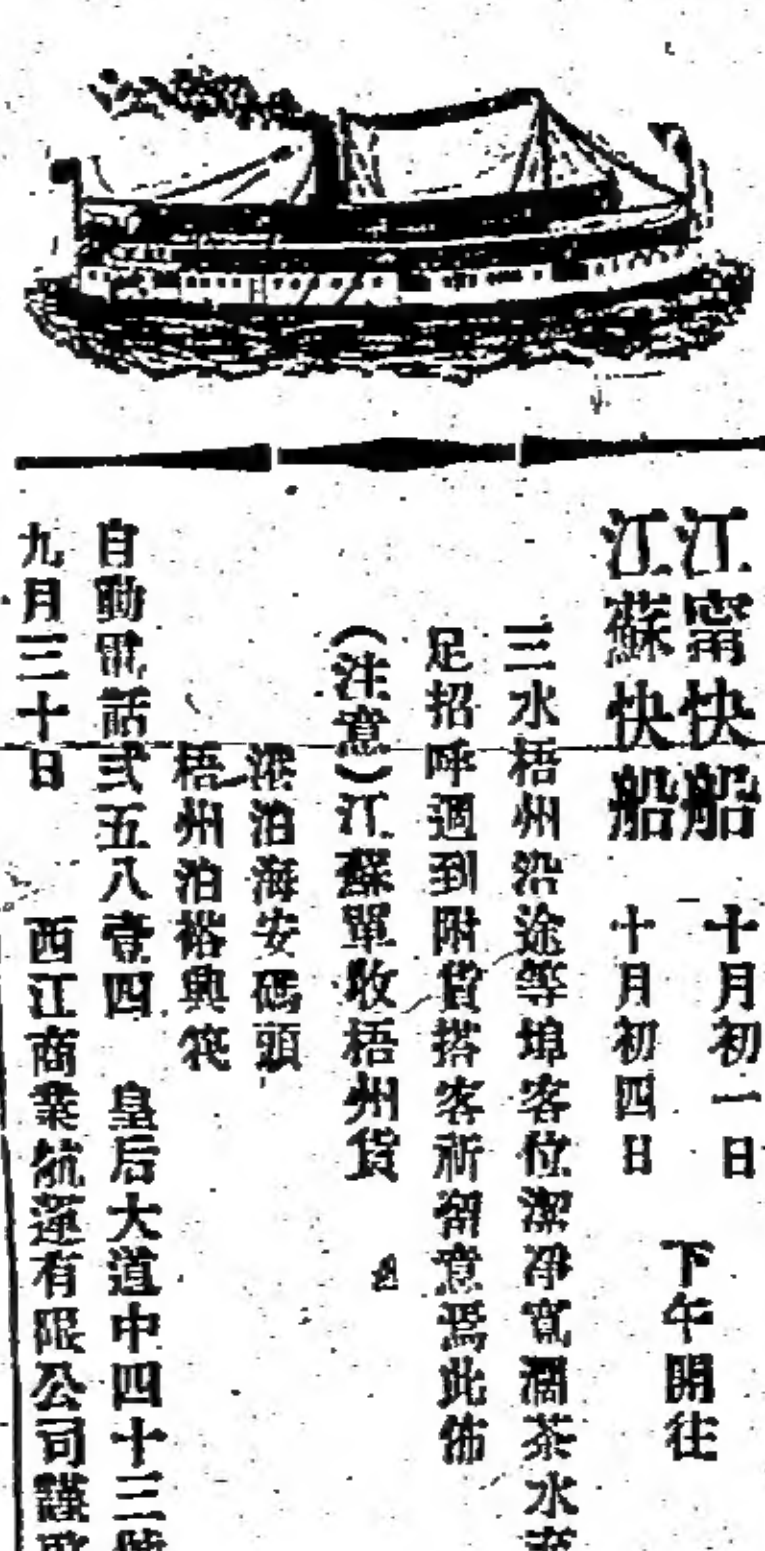 江甯快船 十月初一日
江蘇快船 十月初四日
下午開往
三水梧州沿途等埠客位潔淨寬濶茶水充
足招呼週到附貨搭客祈留意焉此佈
(注意)江蘇單收梧州貨
港泊海安碼頭
梧州泊裕興筏
自動電話弍五八壹四 皇后大道中四十三號
九月三十日 西江商業航運有限公司謹啟